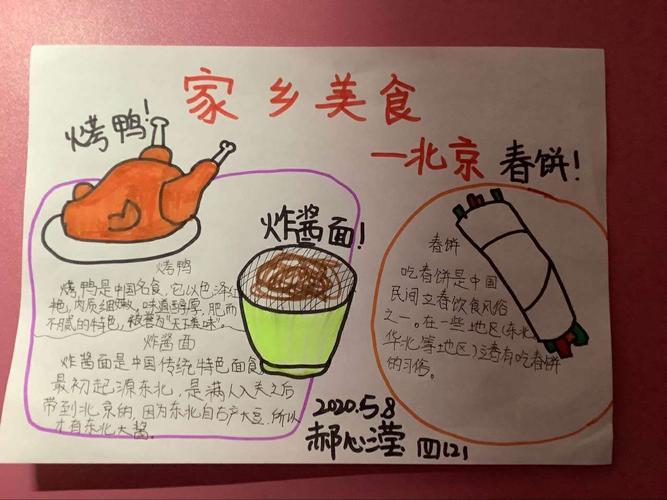 家乡美食
—北京
烤鸭!
春饼!
炸酱面!
烤鸭
烤鸭是中国名食,它以色泽红
艳,肉质细嫩,味道醇厚,肥而
不腻的特色,被誉为“天下美味”。
炸酱面
炸酱面是中国传统特色面食
最初起源东北,是满人入关之后
带到北京的,因为东北自古产大豆,所以
才有东北大酱。
春饼
吃春饼是中国
民间立春饮食风俗
之一。在一些地区(东北
华北等地区)立春有吃春饼
的习俗。
2020.5.8
郝心滢 四(2)